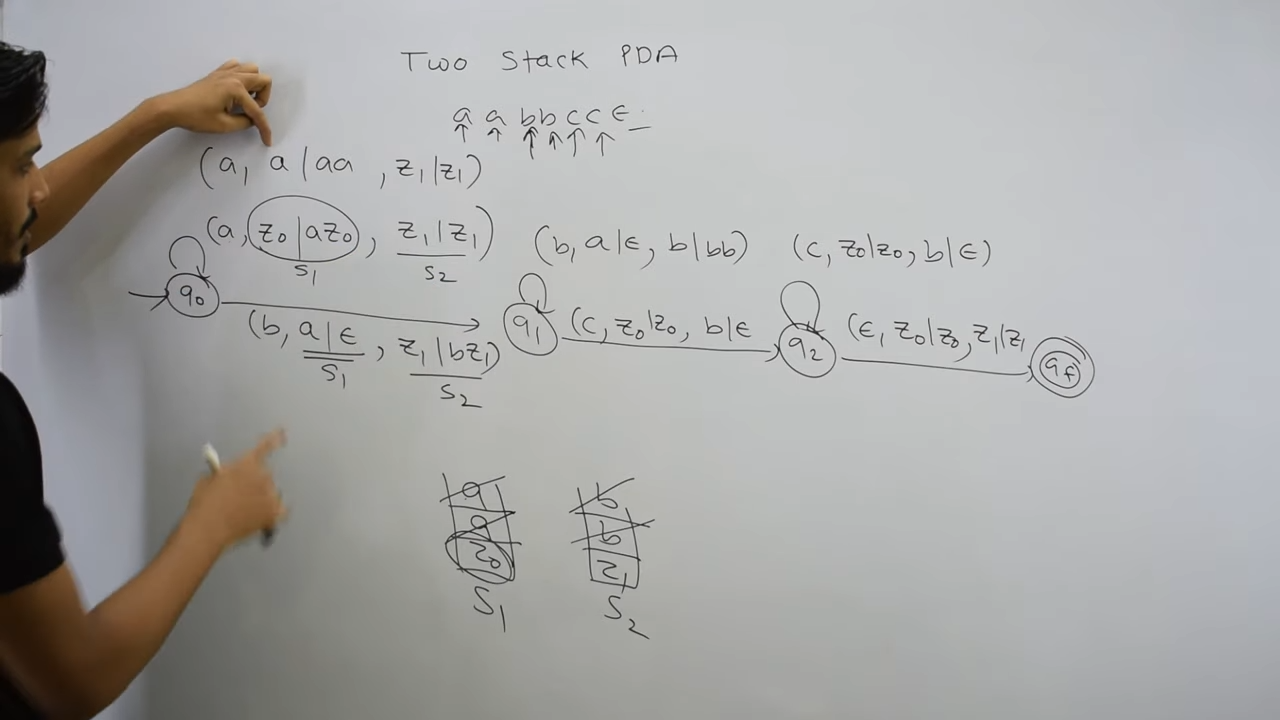 Two Stack PDA
a a b b c c ϵ
(a, a | aa , z₁|z₁)
(a, z₀ | az₀ , z₁ | z₁)
S₁ S₂
(b, a|ϵ, b|bb)
(c, z₀|z₀, b|ϵ)
q₀
(b, a | ϵ , z₁ | bz₁)
S₁ S₂
q₁
(c, z₀|z₀, b|ϵ
q₂
(ϵ, z₀|z₀, z₁|z₁
qf
a b
a b
z₀ z₁
S₁ S₂